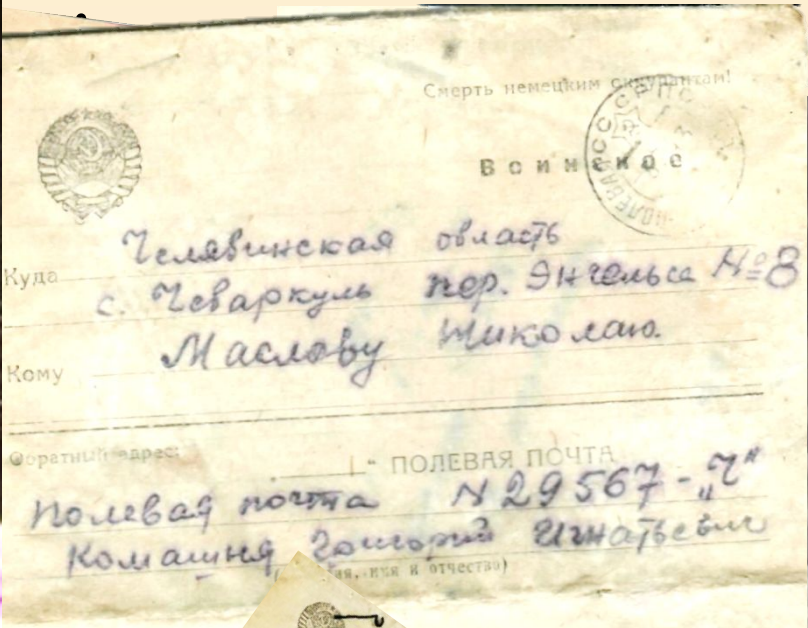 Смерть немецким оккупантам!
Воинское
СССР
ПОЛЕВАЯ
Куда Челябинская область
с. Чебаркуль пер. Энгельса №8
Кому Маслову Николаю.
Обратный адрес:
ПОЛЕВАЯ ПОЧТА
Полевая почта N 29567-„Ч“
Комашня Григорий Игнатьевич
имя и отчество)